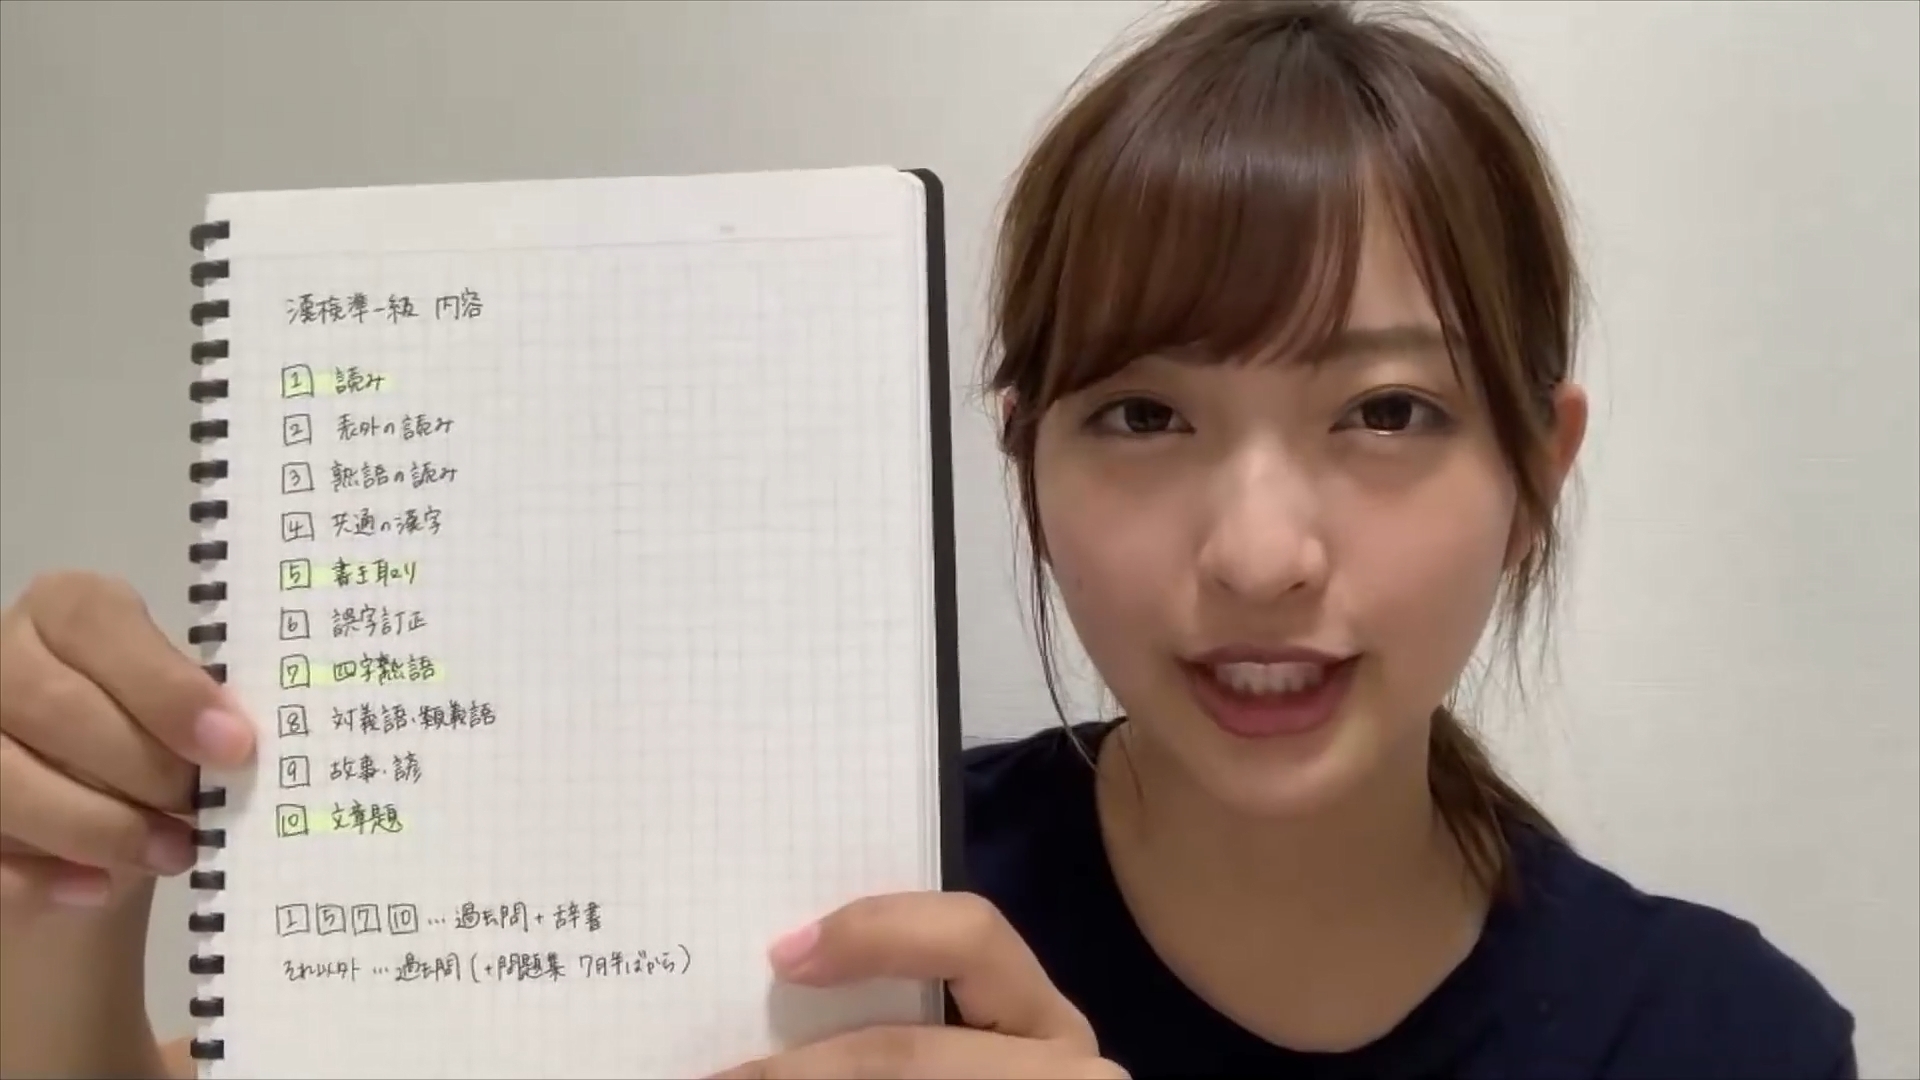 漢検準一級 内容
1 読み
2 表外の読み
3 熟語の読み
4 共通の漢字
5 書き取り
6 誤字訂正
7 四字熟語
8 対義語・類義語
9 故事・諺
10 文章題
1 5 7 10 … 過去問 + 辞書
それ以外 … 過去問 (+問題集 7月半ばから)